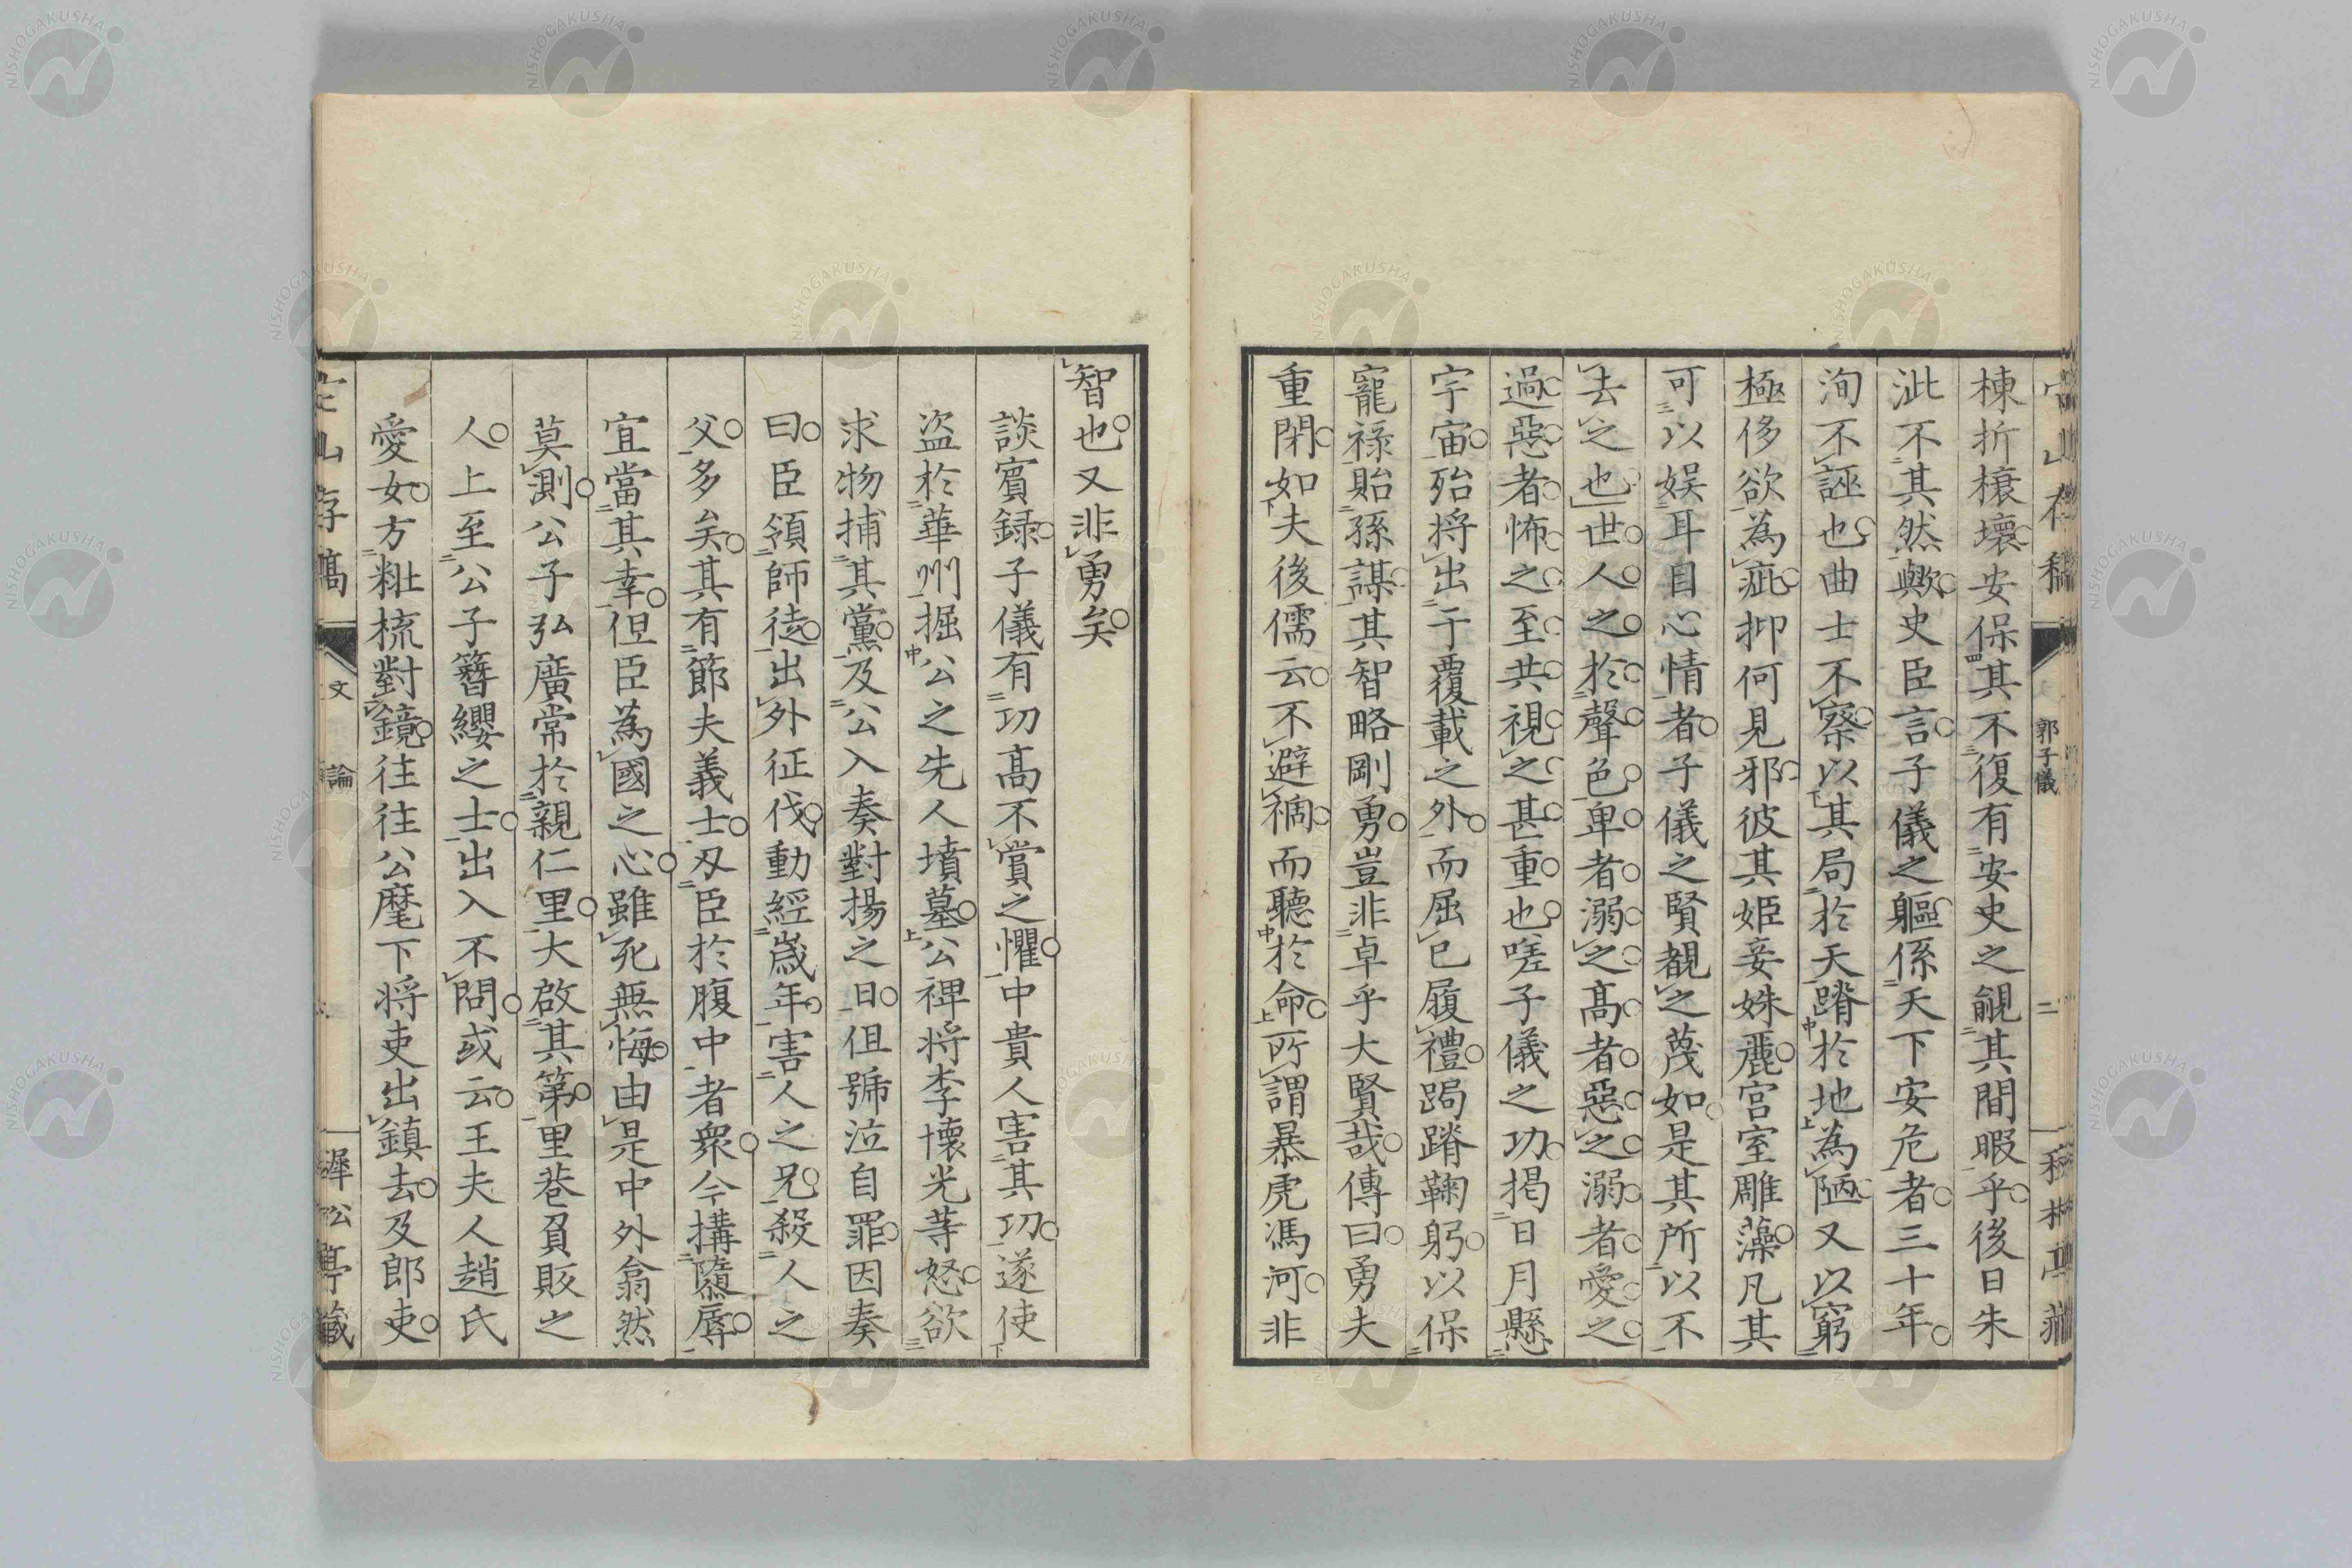 郭子儀
二
棟折榱壞安保其不復有安史之覦其間暇乎後日朱
泚不其然歟史臣言子儀之軀係天下安危者三十年
洵不誣也曲士不察以其局於天蹐於地為陋又以窮
極侈欲為疵抑何見邪彼其姬妾姝麗宮室雕藻凡其
可以娱耳自心情者子儀之賢覩之蔑如是其所以不
去之也世人之於聲色卑者溺之高者惡之溺者愛之
過惡者怖之至共視之甚重也嗟子儀之功掲日月懸
宇宙殆将出于覆載之外而屈已履禮跼蹐鞠躬以保
寵祿貽孫謀其智略剛勇豈非卓乎大賢哉傳曰勇夫
重閉如夫後儒云不避禍而聽於命所謂暴虎馮河非
智也又非勇矣
談賓録子儀有功髙不賞之懼中貴人害其功遂使
盗於華州掘公之先人墳墓公裨将李懐光等怒欲
求物捕其黨及公入奏對揚之日但號泣自罪因奏
曰臣領師徒出外征伐動經歲年害人之兄殺人之
父多矣其有節夫義士刃臣於腹中者衆今搆隳辱
宜當其幸但臣為國之心雖死無悔由是中外翕然
莫測公子弘廣常於親仁里大啟其第里巷負販之
人上至公子簪纓之士出入不問或云王夫人趙氏
愛女方粧梳對鏡往往公麾下将吏出鎮去及郎吏
存稾
文
論
遲松亭藏